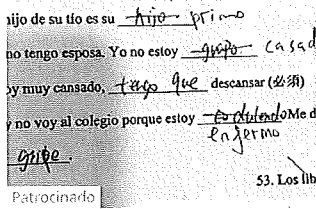 hijo de su tío es su hijo primo
no tengo esposa. Yo no estoy grupo casad
oy muy cansado, tengo que descansar (必须)
y no voy al colegio porque estoy Me d
enfermo
gripe.
53. Los lib
Patrocinado